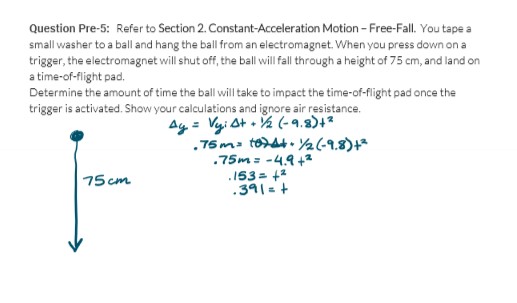 Question Pre-5: Refer to Section 2. Constant-Acceleration Motion – Free-Fall. You tape a
small washer to a ball and hang the ball from an electromagnet. When you press down on a
trigger, the electromagnet will shut off, the ball will fall through a height of 75 cm, and land on
a time-of-flight pad.
Determine the amount of time the ball will take to impact the time-of-flight pad once the
trigger is activated. Show your calculations and ignore air resistance.
Δy = Vyi Δt + ½ (-9.8)t²
.75m = (0)Δt + ½(-9.8)t²
.75m = -4.9t²
.153 = t²
.391 = t
75cm